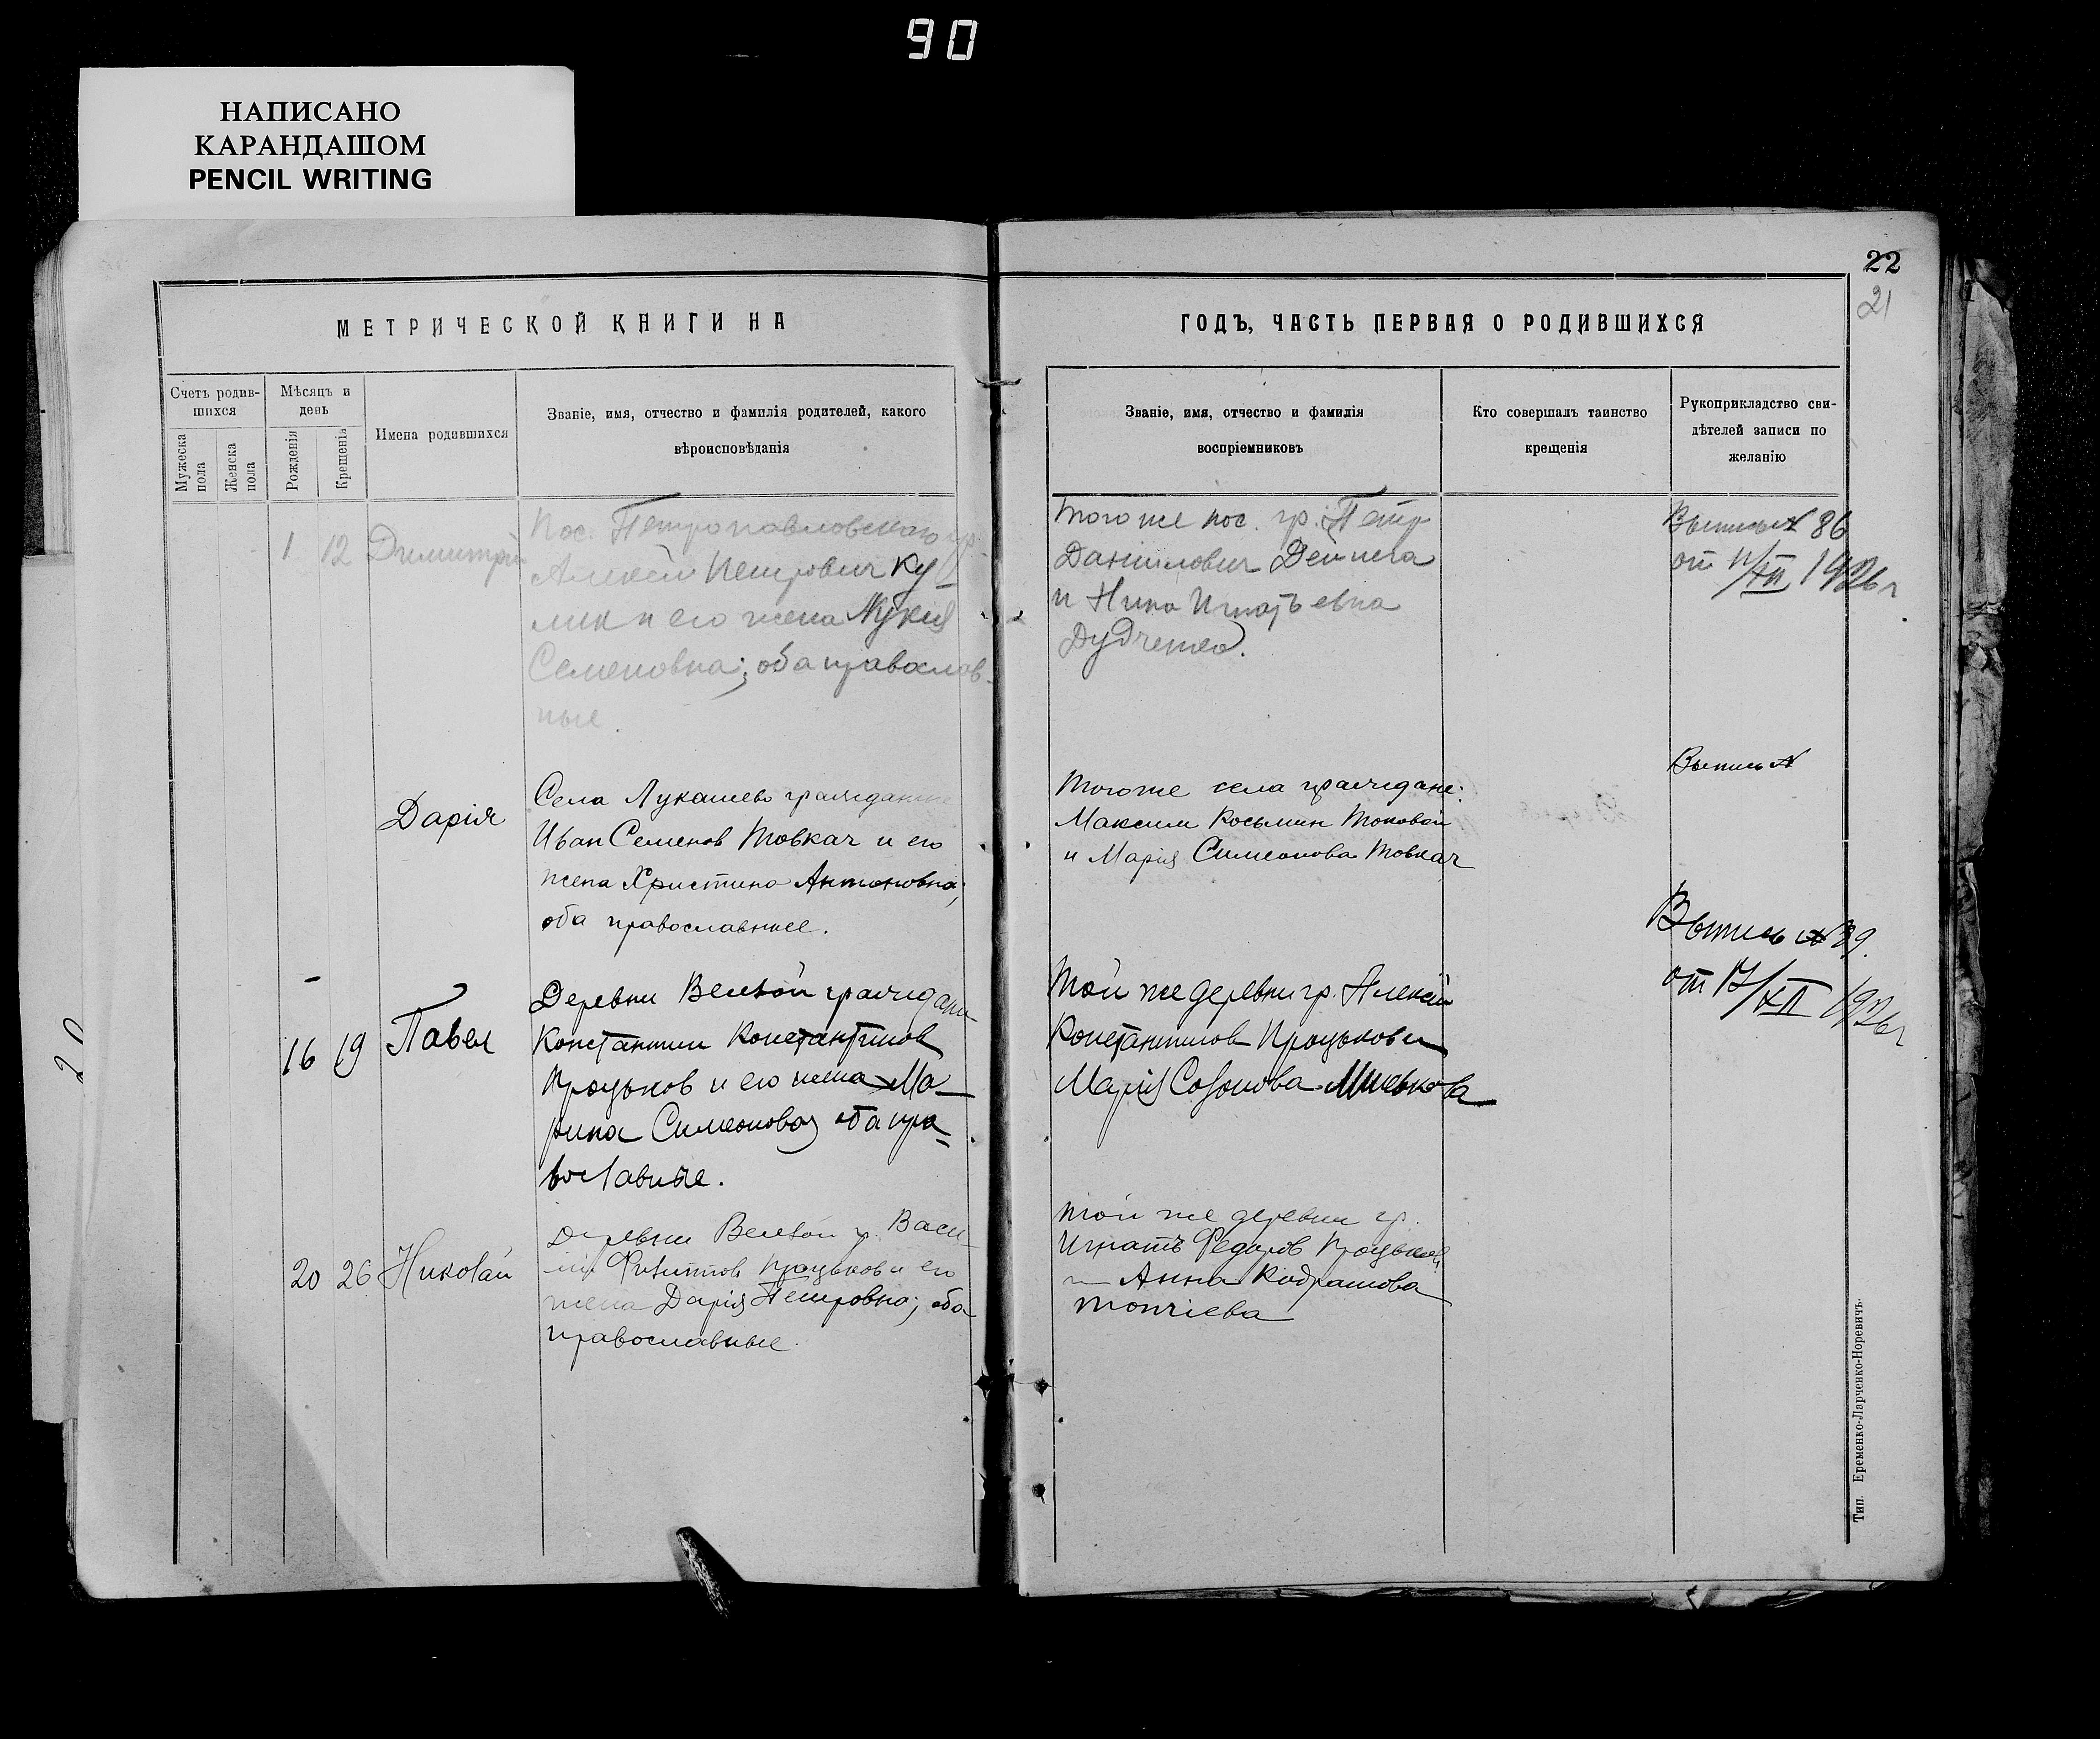 90
НАПИСАНО
КАРАНДАШОМ
PENCIL WRITING
22
21
МЕТРИЧЕСКОЙ КНИГИ НА
ГОДЪ, ЧАСТЬ ПЕРВАЯ О РОДИВШИХСЯ
Счетъ родив-
шихся
Мужеска
пола
Женска
пола
Мѣсяцъ и
день
Рожденія
Крещенія
Имена родившихся
Званіе, имя, отчество и фамилія родителей, какого
вѣроисповѣданія
Званіе, имя, отчество и фамилія
воспріемниковъ
Кто совершалъ таинство
крещенія
Рукоприкладство сви-
дѣтелей записи по
желанію
1 12 Димитрій
Пос. Петропавловскаго гр.
Алексей Петрович Ку-
лик и его жена Лукия
Семеновна; оба православ-
ные.
Того же пос. гр. Петр
Данилович
и Нина Игнатьевна
Выпись № 86
от 11/XII 1926 г
Дарія
Села Лукашево граждане
Иван Семенов Товкач и его
жена Христина Антоновна;
оба православные.
Того же села граждане:
Максим Косьмин Токовой
и Мария Симеонова Товкач
Выпись №
16 19 Павел
Деревни Белой граждани
Константин Константинов
Процьков и его жена Ма-
рина Симеонова, оба пра-
вославные.
Той же деревни гр. Алексей
Константинов Процьков и
Мария Созонова
Выпись № 39.
от 17/XII 1926 г
20 26 Николай
Деревни Белой гр. Васи-
лий Филиппов Процьков и его
жена Дария Петровна; оба
православные.
Той же деревни гр.
Игнатъ Федоров Процьков
и Анна Кодратова
Топчіева
Тип. Еременко-Ларченко-Норевичъ.